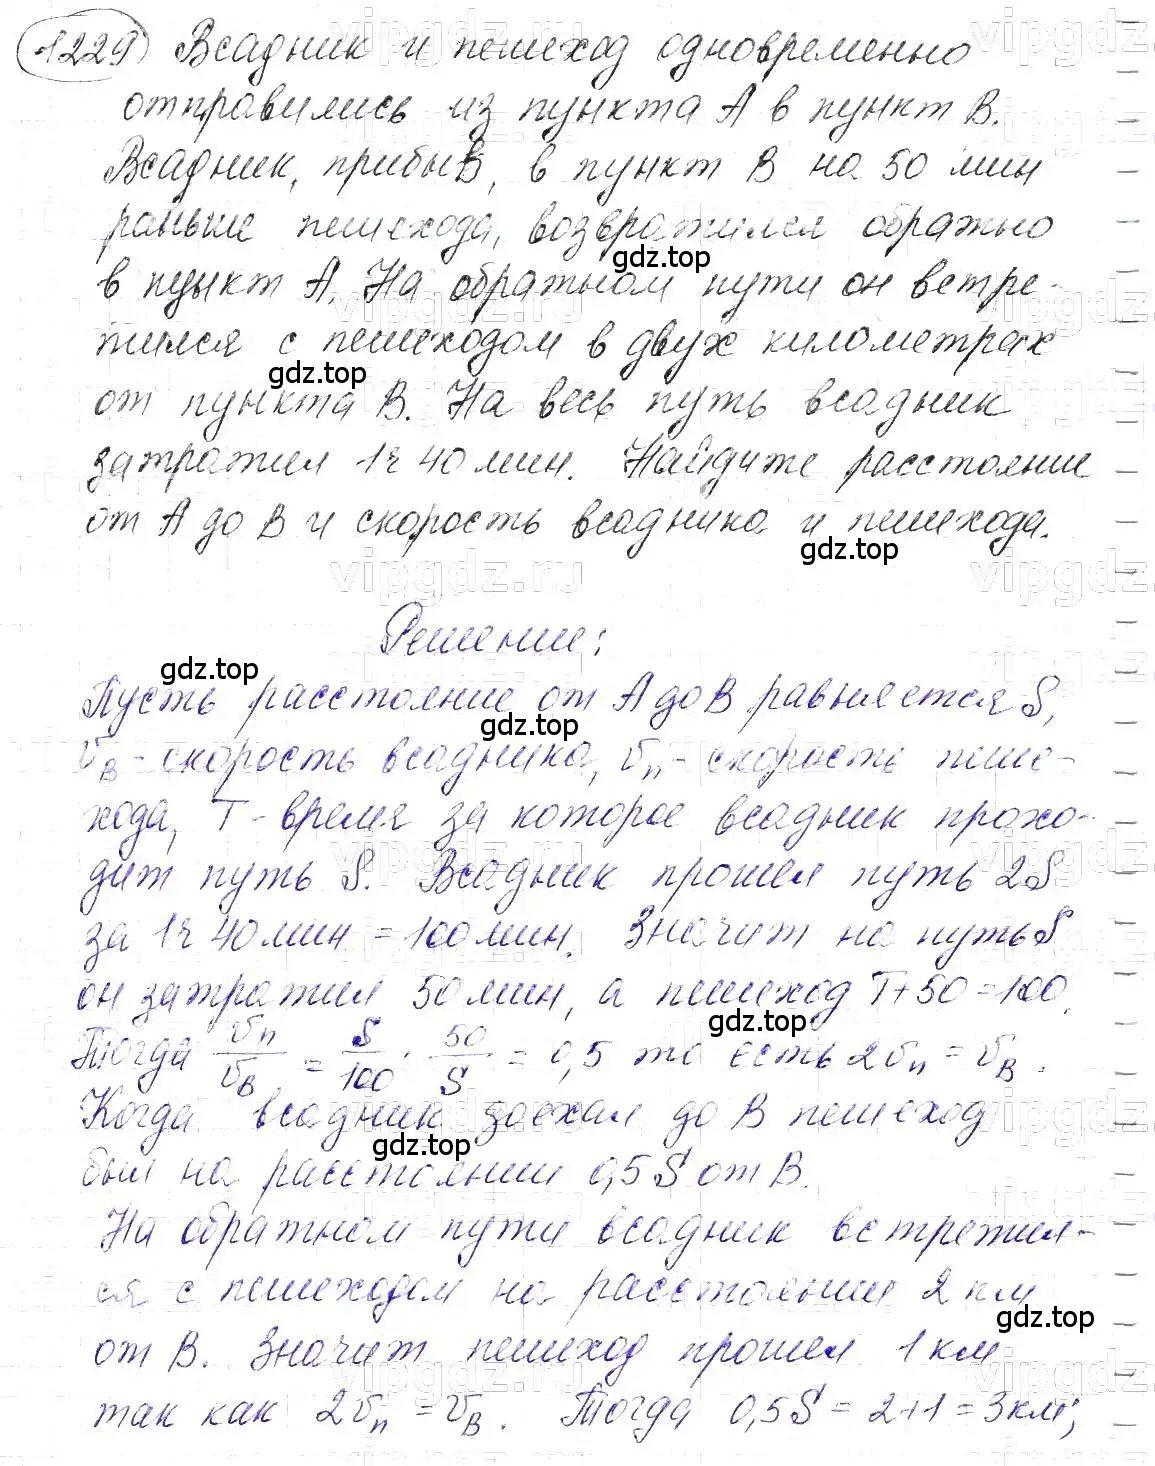 1229 Всадник и пешеход одновременно
отправились из пункта А в пункт В.
Всадник, прибыв, в пункт В на 50 мин
раньше пешехода, возвратился обратно
в пункт А. На обратном пути он встре-
тился с пешеходом в двух километрах
от пункта В. На весь путь всадник
затратил 1ч 40 мин. Найдите расстояние
от А до В и скорость всадника и пешехода.
Решение:
Пусть расстояние от А до В равняется S,
υв - скорость всадника, υп - скорость пеше-
хода, Т - время за которое всадник прохо-
дит путь S. Всадник прошел путь 2S
за 1ч 40 мин = 100 мин. Значит на путь S
он затратил 50 мин, а пешеход Т+50=100.
Тогда υп/υв = S/100 · 50/S = 0,5 то есть 2υп = υв.
Когда всадник доехал до В пешеход
был на расстоянии 0,5S от В.
На обратном пути всадник встретил-
ся с пешеходом на расстоянии 2 км
от В. Значит пешеход прошел 1 км
так как 2υп = υв. Тогда 0,5S = 2+1 = 3 км;
gdz.top
gdz.top
gdz.top
gdz.top
gdz.top
gdz.top
gdz.top
gdz.top
vipgdz.ru
vipgdz.ru